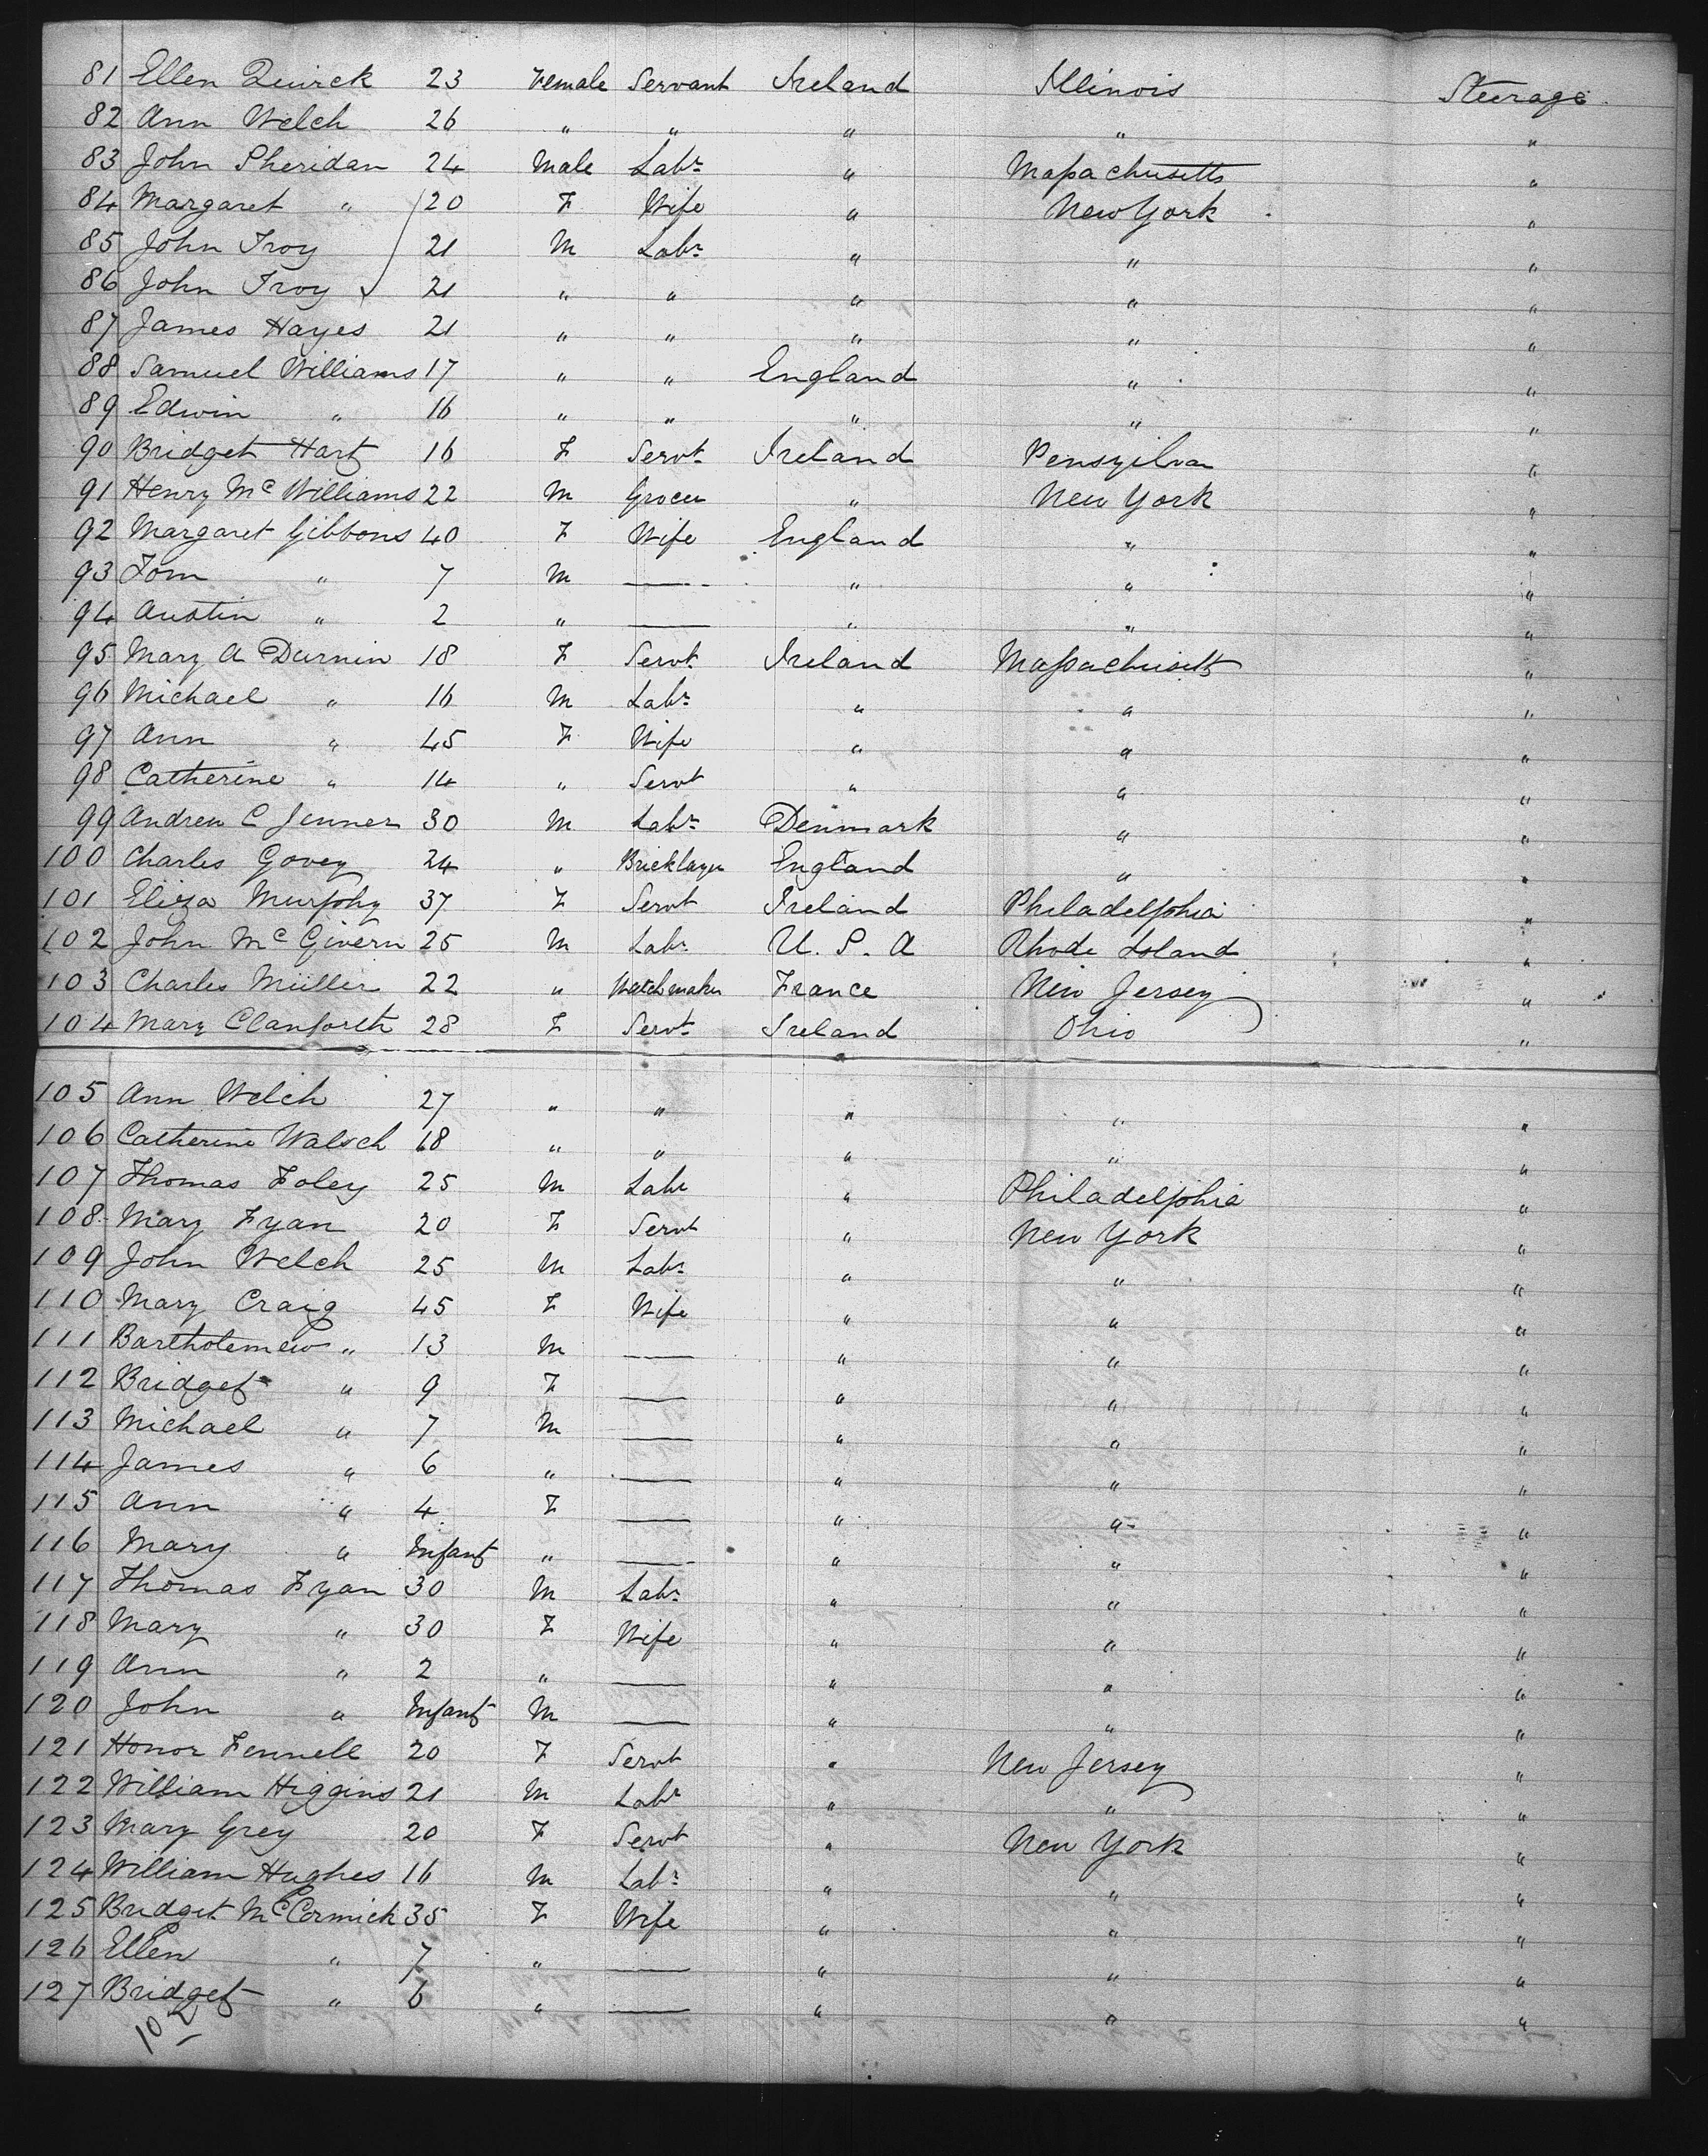 81 Ellen Quirck 23 Female Servant Ireland Illinois Steerage
82 Ann Welch 26 " " " " "
83 John Sheridan 24 Male Labr " Massachusetts "
84 Margaret " 20 F Wife " New York "
85 John Troy 21 M Labr " " "
86 John Troy 21 " " " " "
87 James Hayes 21 " " " " "
88 Samuel Williams 17 " " England " "
89 Edwin " 16 " " " " "
90 Bridget Hart 16 F Servt Ireland Pensyilvan "
91 Henry McWilliams 22 M Grocer " New York "
92 Margaret Gibbons 40 F Wife England " "
93 Tom " 7 M — " " "
94 Austin " 2 " — " " "
95 Mary A Durnin 18 F Servt Ireland Massachusetts "
96 Michael " 16 M Labr " " "
97 Ann " 45 F Wife " " "
98 Catherine " 14 " Servt " " "
99 Andrew C Jenner 30 M Labr Denmark " "
100 Charles Govey 24 " Bricklayer England " "
101 Eliza Murphy 37 F Servt Ireland Philadelphia "
102 John McGivern 25 M Labr U. S. A Rhode Island "
103 Charles Müller 22 " Watchmaker France New Jersey "
104 Mary Clanforth 28 F Servt Ireland Ohio "
105 Ann Welch 27 " " " " "
106 Catherine Walsch 18 " " " " "
107 Thomas Foley 25 M Labr " Philadelphia "
108 Mary Fyan 20 F Servt " New York "
109 John Welch 25 M Labr " " "
110 Mary Craig 45 F Wife " " "
111 Bartholemew " 13 M — " " "
112 Bridget " 9 F — " " "
113 Michael " 7 M — " " "
114 James " 6 " — " " "
115 Ann " 4 F — " " "
116 Mary " Infant " — " " "
117 Thomas Fyan 30 M Labr " " "
118 Mary " 30 F Wife " " "
119 Ann " 2 " — " " "
120 John " Infant M — " " "
121 Honor Fennell 20 F Servt " New Jersey "
122 William Higgins 21 M Labr " " "
123 Mary Grey 20 F Servt " New York "
124 William Hughes 16 M Labr " " "
125 Bridget McCormick 35 F Wife " " "
126 Ellen " 7 " — " " "
127 Bridget " 6 " — " " "
102